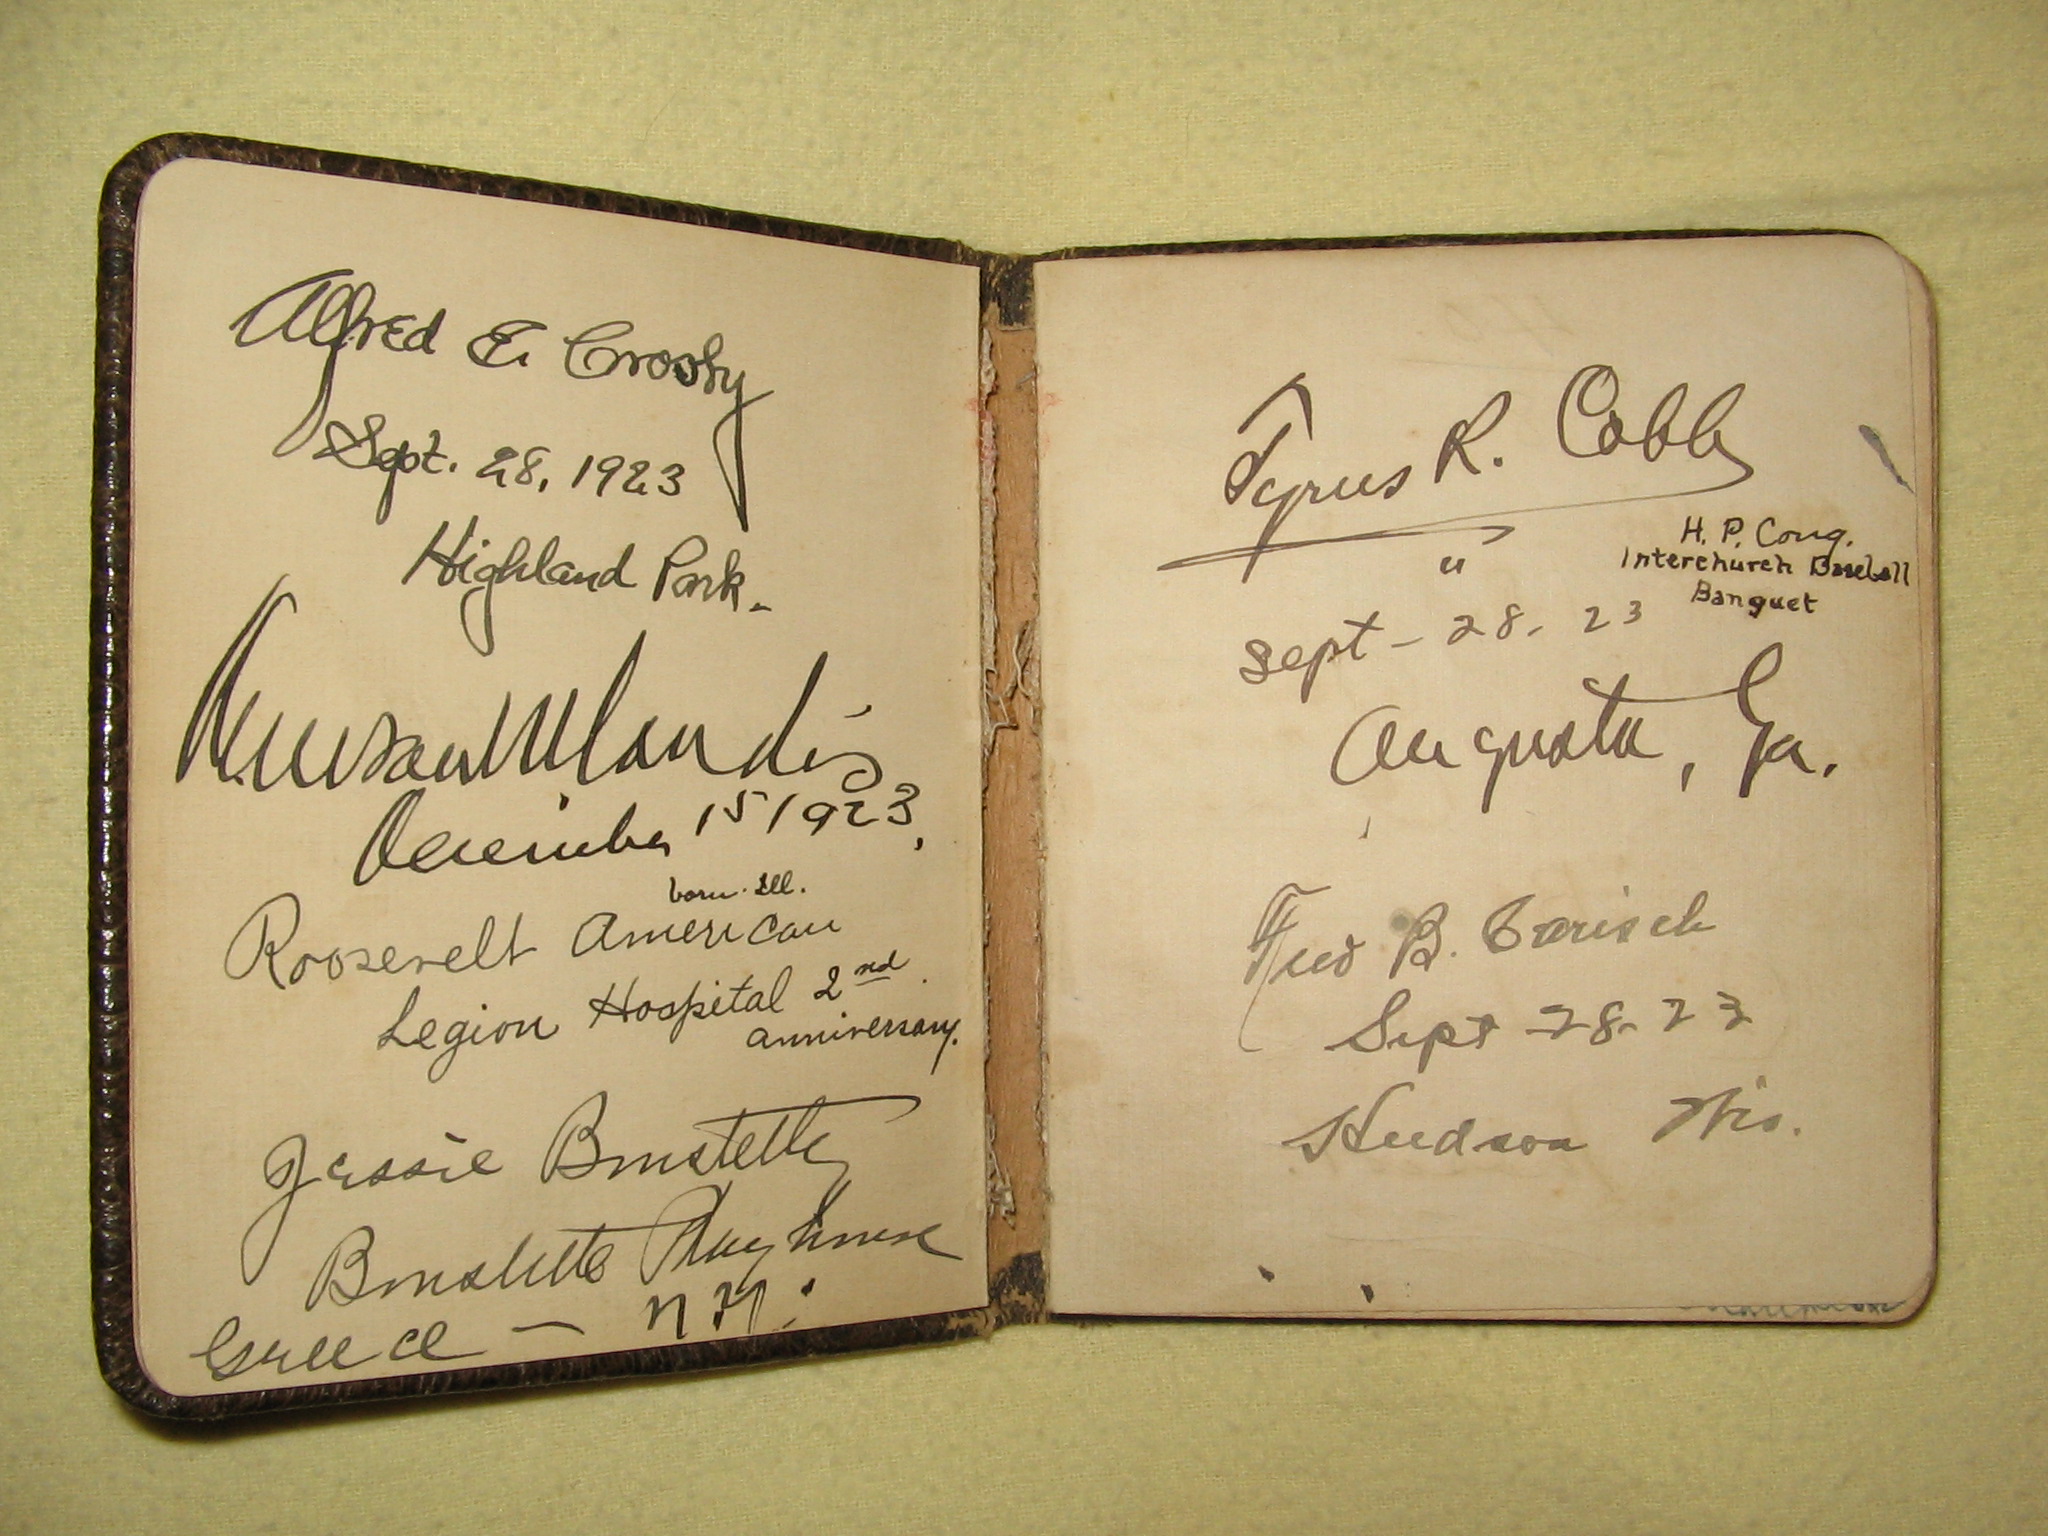 Alfred E. Crosby
Sept. 28, 1923
Highland Park.
Kenesaw M Landis
December 15 1923,
born Ill.
Roosevelt American
Legion Hospital 2nd
anniversary.
Jessie Bonstelle
Bonstelle Playhouse
Greece — N.Y.
Tyrus R. Cobb
"
H. P. Cong.
Interchurch Baseball
Banquet
Sept - 28. 23
Augusta, Ga.
Fred B.
Sept 28-23
Hudson Wis.